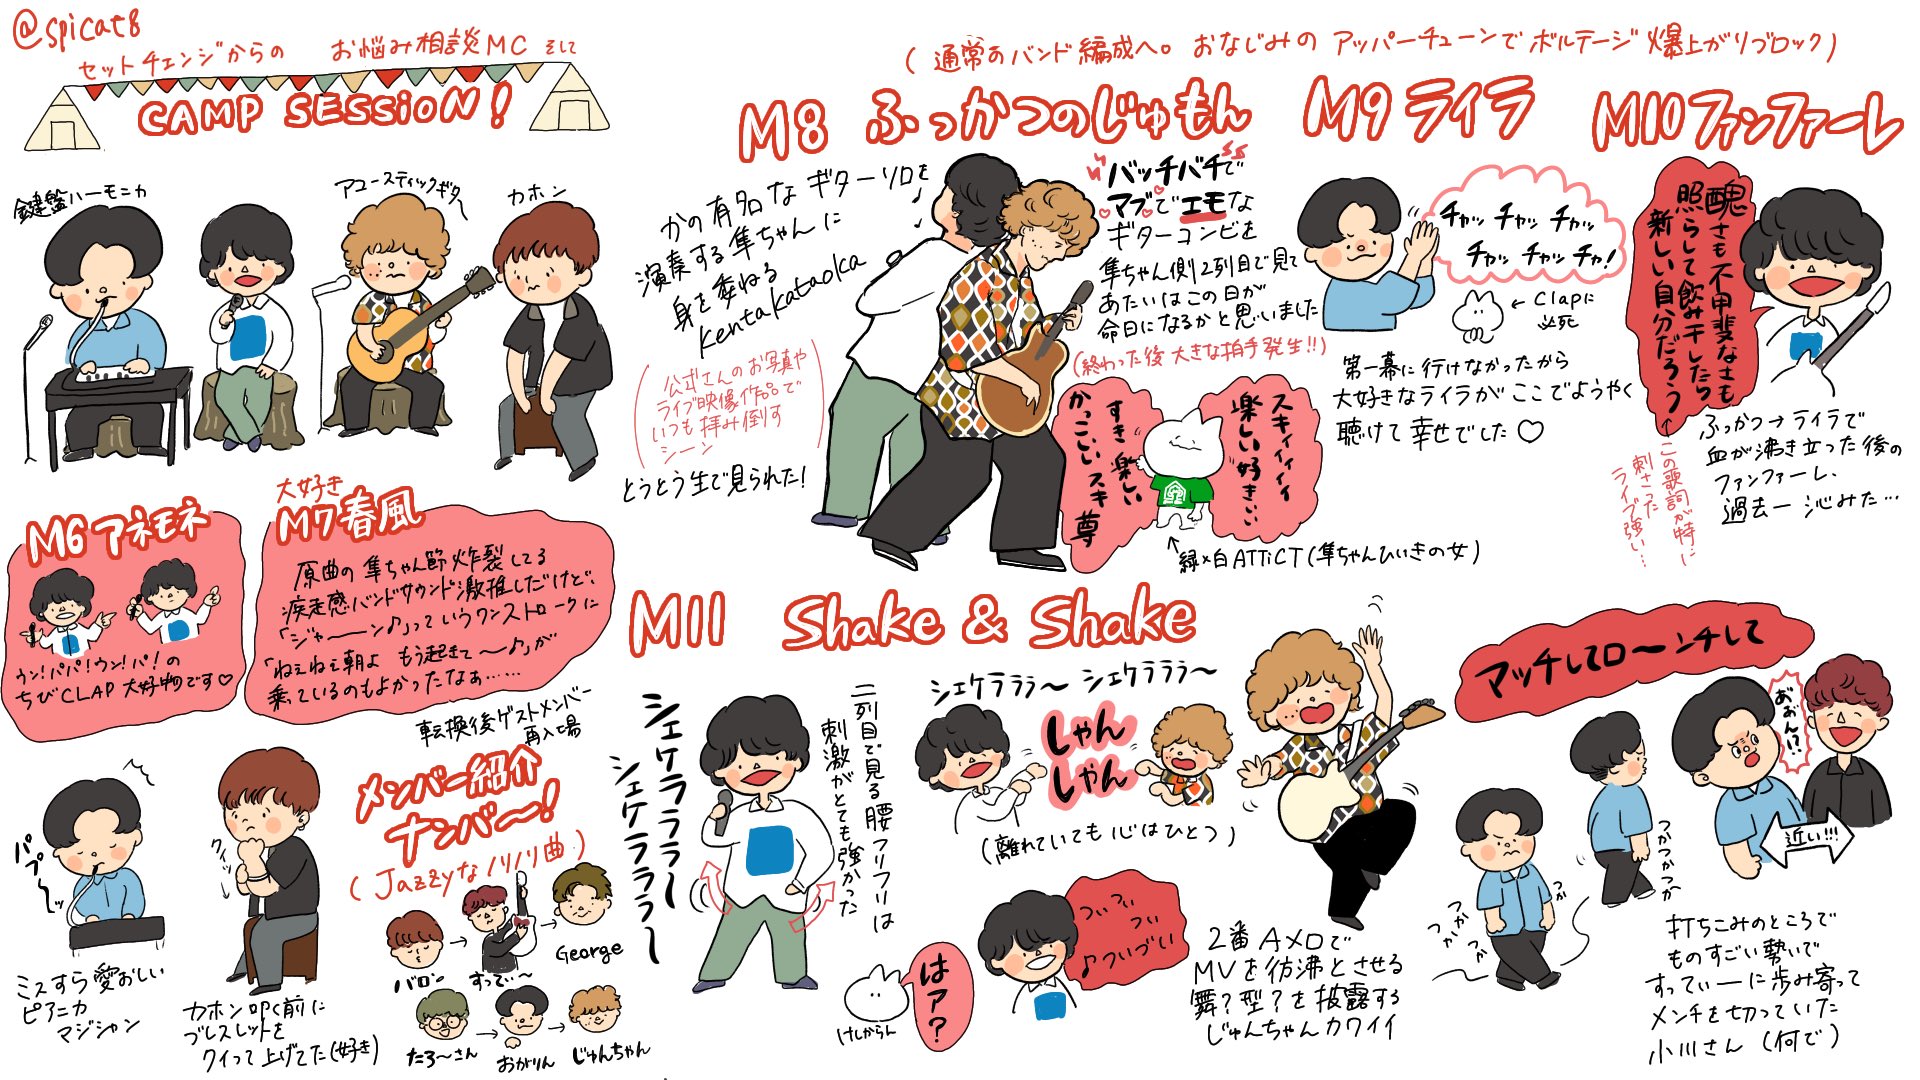 @spicat8
セットチェンジからの お悩み相談MC そして
CAMP SESSiON!
鍵盤ハーモニカ
アコースティックギター
カホン
M6 アネモネ
ウン!パパ!ウン!パ!の
ちびCLAP 大好物です♡
大好き
M7 春風
原曲の隼ちゃん節炸裂してる
疾走感バンドサウンド激推しだけど、
「ジャーーン♪」っていうワンストロークに
「ねえねえ朝よ もう起きて〜♪」が
乗っているのもよかったなぁ……
転換後ゲストメンバー
再入場
パプ〜ッ
ミスすら愛おしい
ピアニカ
マジシャン
クイッ
カホン叩く前に
ブレスレットを
クイって上げてた(好き)
メンバー紹介
ナンバ〜!
(Jazzyなノリノリ曲)
バロン
すってぃ〜
George
たろ〜さん
おがりん
じゅんちゃん
(通常のバンド編成へ。おなじみの アッパーチューンで ボルテージ爆上がりブロック)
M8 ふっかつのじゅもん
かの有名なギターソロを
演奏する隼ちゃんに
身を委ねる
kentakataoka
(公式さんのお写真や
ライブ映像作品で
いつも拝み倒す
シーン)
とうとう生で見られた!
バッチバチで
マブでエモな
ギターコンビを
隼ちゃん側2列目で見て
あたいはこの日が
命日になるかと思いました
(終わった後 大きな拍手発生!!)
スキィィィィ
楽しい好きぃぃ
すき 楽しい
かっこいい スキ 尊
↑
緑×白ATTiCT(隼ちゃんひいきの女)
M9 ライラ
チャッ チャッ チャッ
チャッ チャッ チャ!
← Clapに
必死
第一幕に行けなかったから
大好きなライラが ここでようやく
聴けて 幸せでした♡
M10 ファンファーレ
醜さも不甲斐なさも
照らして飲み干したら
新しい自分だろう
←この歌詞が特に
刺さった
ライブ強い…
ふっかつ→ライラで
血が沸き立った後の
ファンファーレ、
過去一沁みた…
M11 Shake & Shake
シェケラララ〜
シェケラララ〜
二列目で見る腰フリフリは
刺激がとても強かった
シェケラララぅ〜 シェケラララぅ〜
しゃん
しゃん
(離れていても心はひとつ)
はァ?
けしからん
つぃ つぃ
つぃ
♪つぃづぃ
2番Aメロで
MVを彷沸とさせる
舞?型?を披露する
じゅんちゃんカワイイ
マッチしてロ〜ンチして
おぉん!?
近い!!!
つかつか
つか
つか
つかつかつか
打ちこみのところで
ものすごい勢いで
すってぃーに歩み寄って
メンチを切っていた
小川さん(何で)